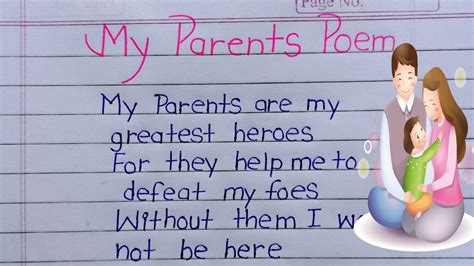 Page No.
My Parents Poem
My Parents are my
greatest heroes
For they help me to
defeat my foes
Without them I
not be here